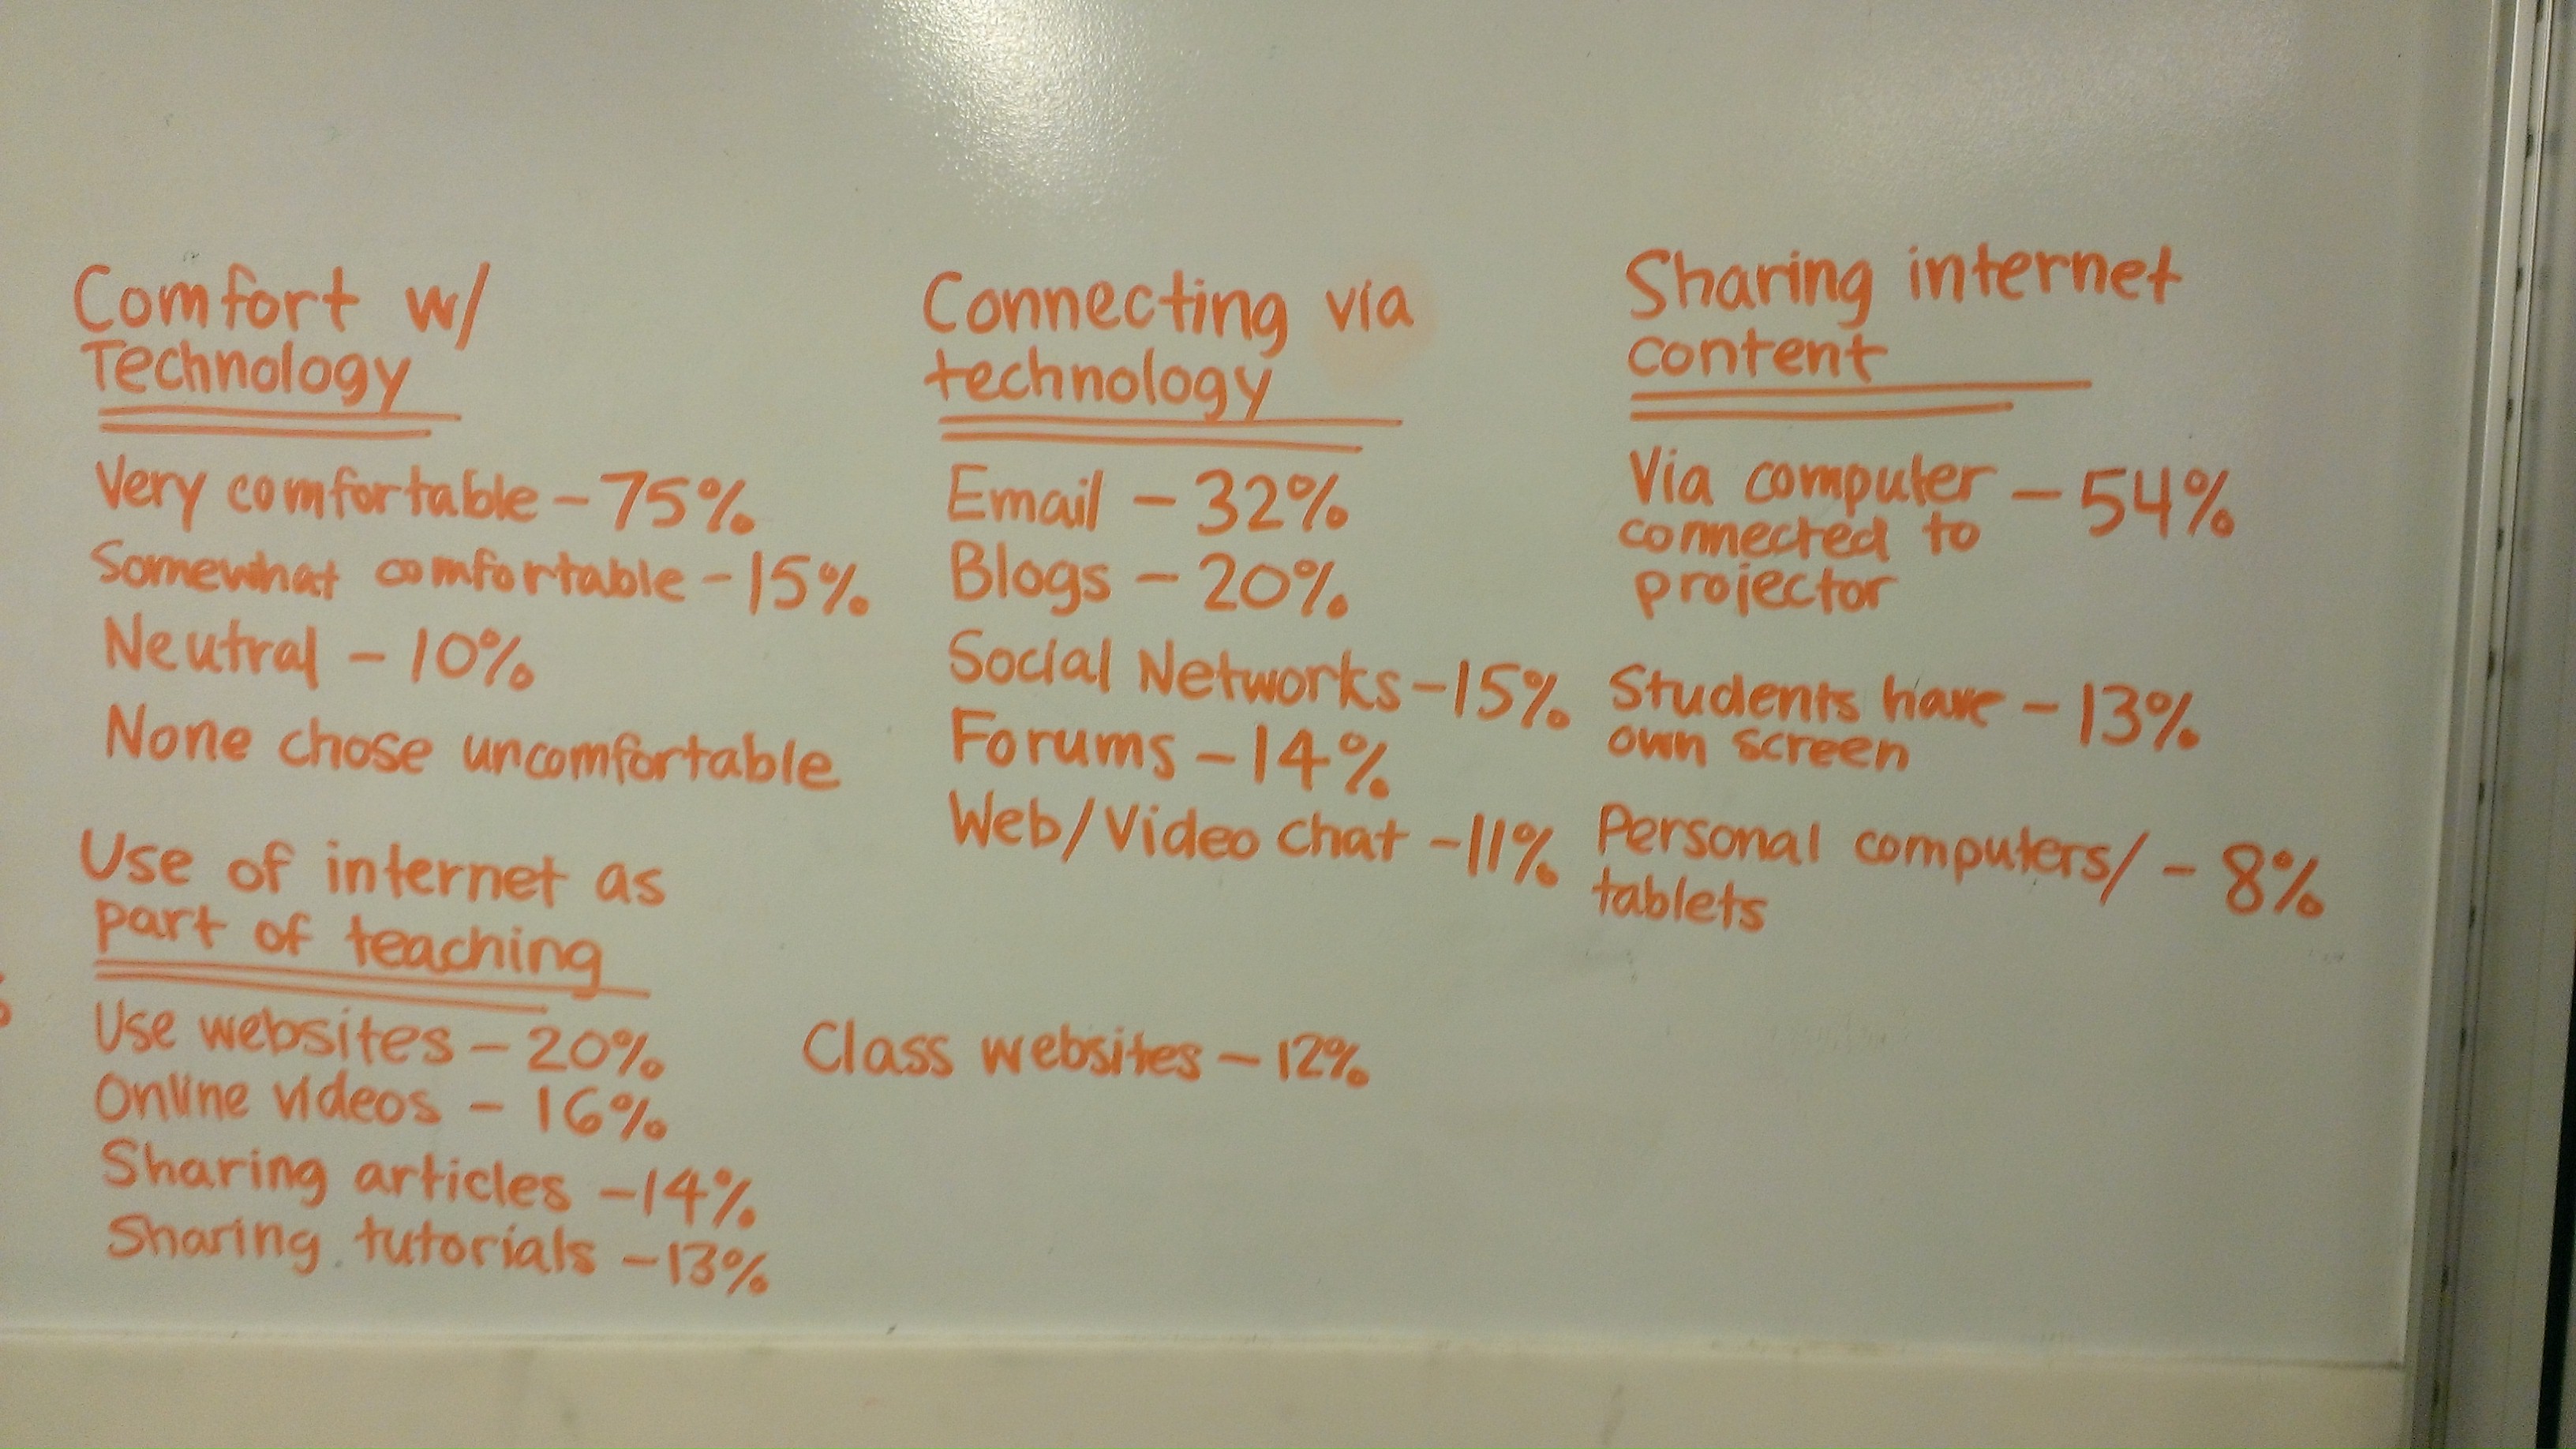 Comfort w/
Technology
Very comfortable - 75%
Somewhat comfortable - 15%
Neutral - 10%
None chose uncomfortable
Use of internet as
part of teaching
Use websites - 20%
Online videos - 16%
Sharing articles - 14%
Sharing tutorials - 13%
Class websites - 12%
Connecting via
technology
Email - 32%
Blogs - 20%
Social Networks - 15%
Forums - 14%
Web/Video chat - 11%
Sharing internet
content
Via computer - 54%
connected to
projector
Students have - 13%
own screen
Personal computers/ - 8%
tablets